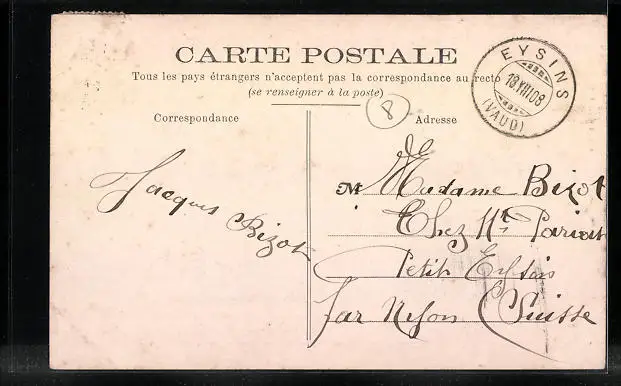 CARTE POSTALE
Tous les pays étrangers n'acceptent pas la correspondance au recto
(se renseigner à la poste)
EYSINS
18 VIII 08
(VAUD)
8
Correspondance
Adresse
Jacques Bizot
M Madame Bizot
Chez Mr
Petit Eysins
par Nyon (Suisse